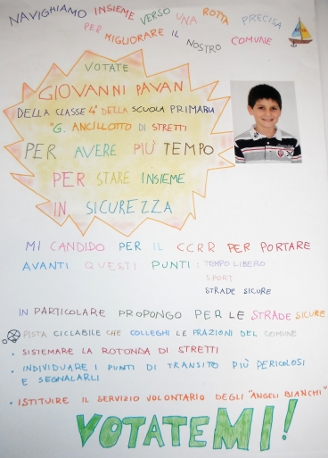 NAVIGHIAMO INSIEME VERSO UNA ROTTA PRECISA
PER MIGLIORARE IL NOSTRO COMUNE
VOTATE
GIOVANNI PAVAN
DELLA CLASSE 4ª DELLA SCUOLA PRIMARIA
"G. ANCILLOTTO" DI STRETTI
PER AVERE PIU' TEMPO
PER STARE INSIEME
IN SICUREZZA
MI CANDIDO PER IL CCRR PER PORTARE
AVANTI QUESTI PUNTI: TEMPO LIBERO
SPORT
STRADE SICURE
IN PARTICOLARE PROPONGO PER LE STRADE SICURE
PISTA CICLABILE CHE COLLEGHI LE FRAZIONI DEL COMUNE
• SISTEMARE LA ROTONDA DI STRETTI
• INDIVIDUARE I PUNTI DI TRANSITO PIÙ PERICOLOSI
E SEGNALARLI
• ISTITUIRE IL SERVIZIO VOLONTARIO DEGLI "ANGELI BIANCHI"
VOTATEMI!